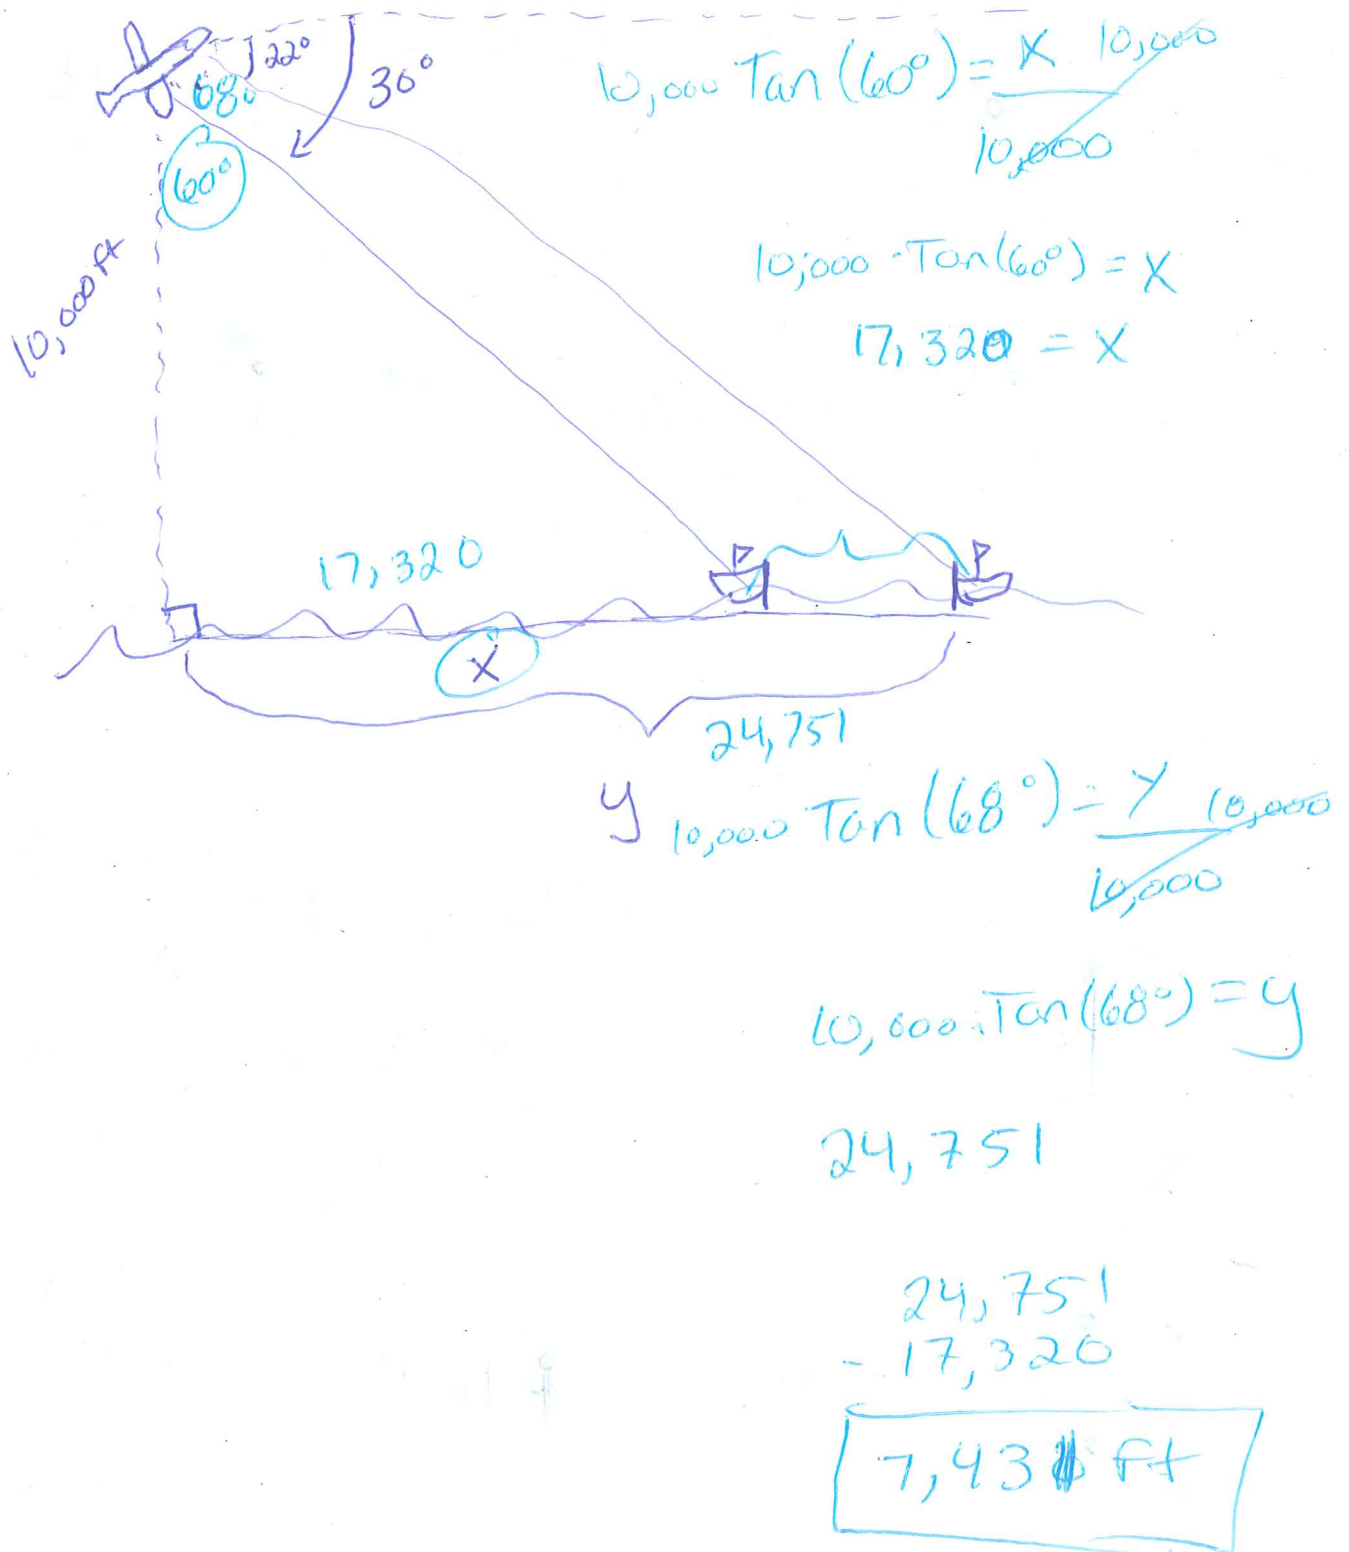 22°
30°
68°
60°
10,000 ft
10,000 Tan (60°) = X 10,000
10,000
10,000 · Tan(60°) = X
17,320 = X
17,320
X
24,751
y
10,000 Tan (68°) = Y 10,000
10,000
10,000 · Tan(68°) = y
24,751
24,751
- 17,320
7,431 ft